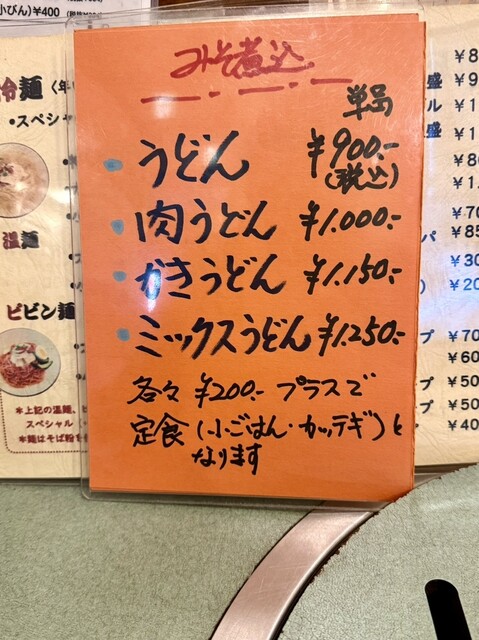 小びん)¥400
みそ煮込
単品
・うどん ¥900.-
(税込)
・肉うどん ¥1.000.-
・かきうどん ¥1.150.-
・ミックスうどん ¥1.250.-
各々 ¥200.- プラスで
定食(小ごはん・カッテギ)と
なります
冷麺
・スペシャ
温麺
ビビン麺
*上記の温麺、ビ
スペシャル(
*麺はそば粉を
盛
盛
パ
¥85
¥30
¥20
プ ¥70
¥60
プ ¥50
プ ¥50
¥40